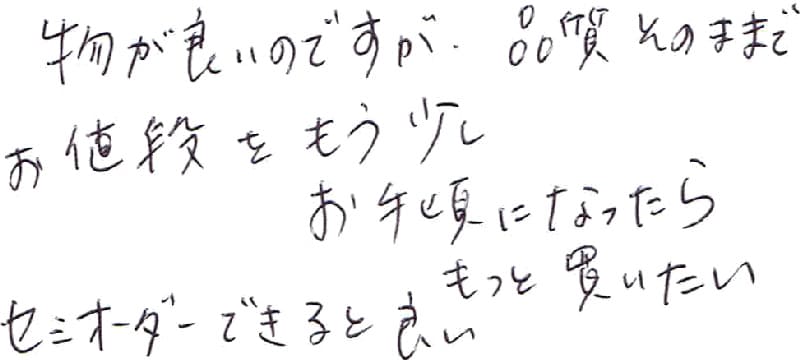 物が良いのですが、品質そのままで
お値段をもう少し
お手頃になったら
もっと買いたい
セミオーダーできると良い